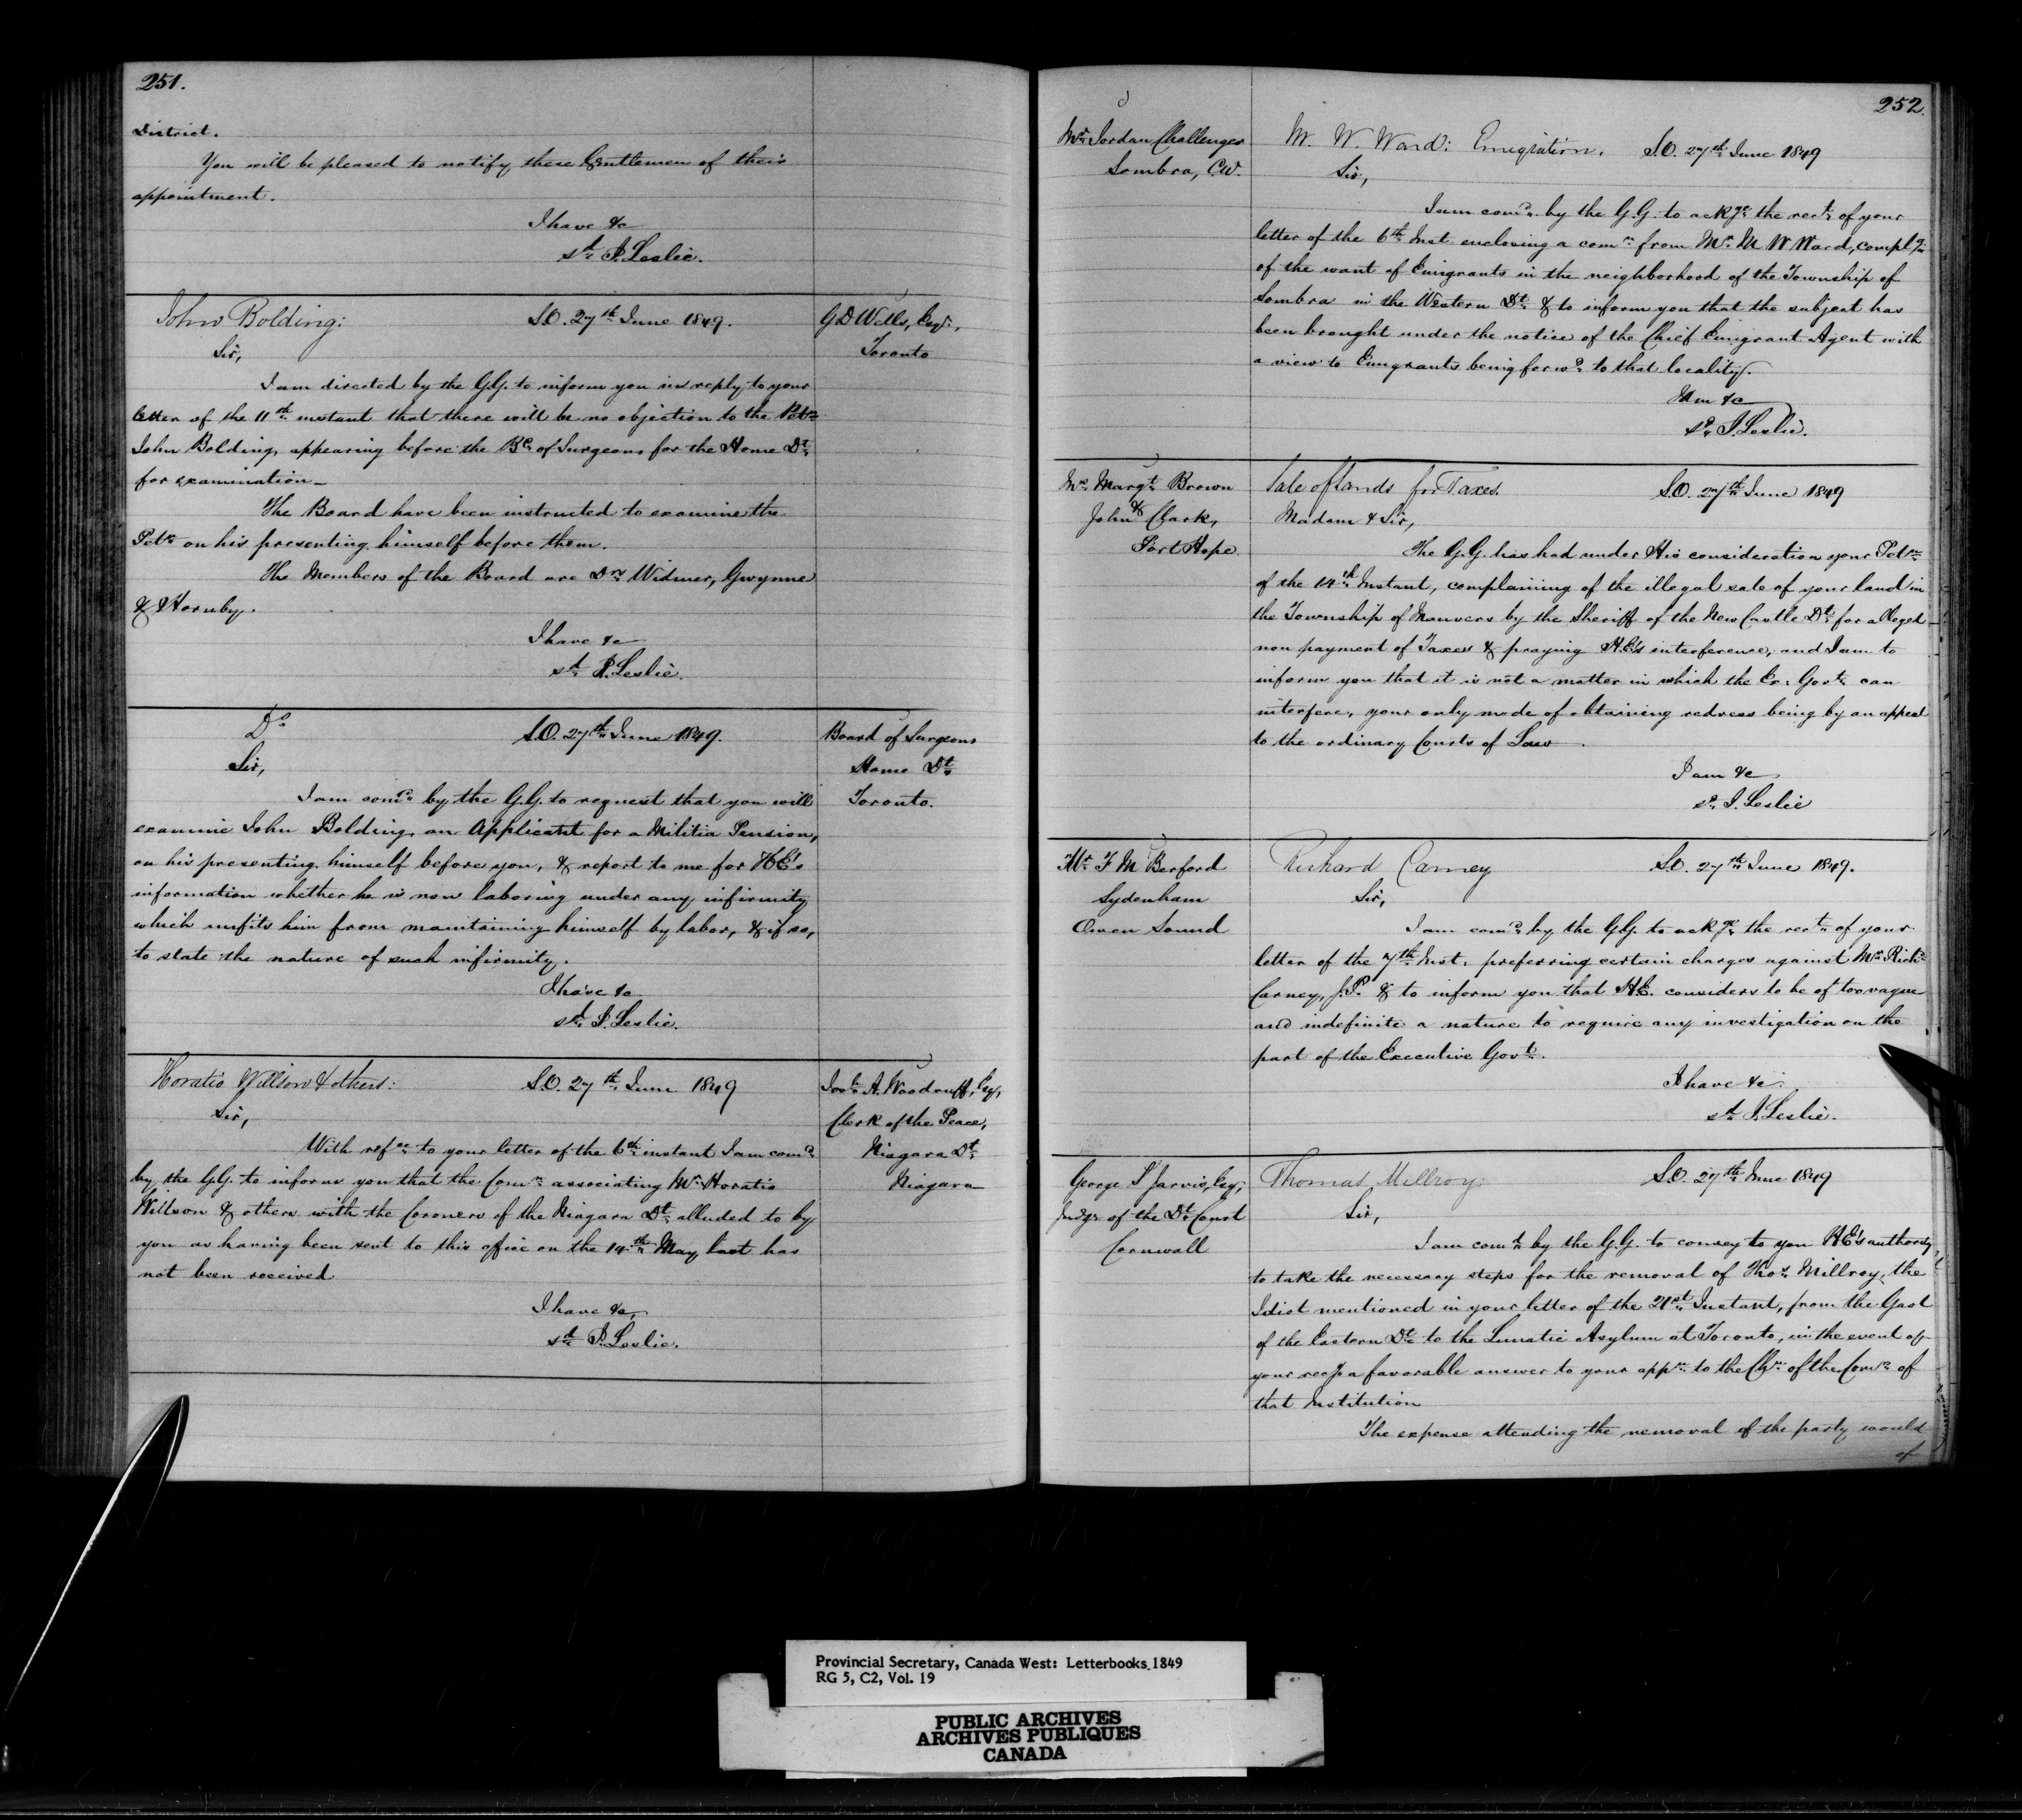 251.
District.
You will be pleased to notify these Gentlemen of their
appointment.
I have &c
sd. J. Leslie.
John Bolding:
S.O. 27th June 1849.
G D Wells, Esqr.,
Toronto
Sir,
I am directed by the G.G. to inform you in reply to your
letter of the 11th instant that there will be no objection to the Petr.
John Bolding, appearing before the Bd. of Surgeons for the Home Dt.
for examination_
The Board have been instructed to examine the
Petr. on his presenting himself before them.
The Members of the Board are Drs Widmer, Gwynne
& Hornby.
I have &c
sd. J. Leslie.
Do
S.O. 27th June 1849.
Board of Surgeons
Home Dt.
Toronto.
Sir,
I am comd. by the G.G. to request that you will
examine John Bolding, an Applicant for a Militia Pension,
on his presenting himself before you, & report to me for HE's
information whether he is now laboring under any infirmity
which unfits him from maintaining himself by labor, & if so,
to state the nature of such infirmity.
I have &c
sd. J. Leslie.
Horatio Willson & others:
S.O. 27th June 1849
A. Woodruff, Esq,
Clerk of the Peace,
Niagara Dt.
Niagara
Sir,
With refce. to your letter of the 6th. instant I am comd.
by the G.G. to inform you that the Comn. associating Mr. Horatio
Willson & others with the Coroners of the Niagara Dt. alluded to by
you as having been sent to this office on the 14th. May last has
not been received
I have &c,
sd. J. Leslie.
252.
Mr. Jordan Challenger
Sombra, C.W.
M. W. Ward: Emigration.
S.O. 27th June 1849
Sir,
I am comd. by the G.G. to ackge. the rect. of your
letter of the 6th Inst. enclosing a comn. from Mr. M W Ward, complg.
of the want of Emigrants in the neighborhood of the Township of
Sombra in the Western Dt. & to inform you that the subject has
been brought under the notice of the Chief Emigrant Agent with
a view to Emigrants being forwd. to that locality.
I am &c
sd. J. Leslie.
Mrs. Margt. Brown
&
John Clark,
Port Hope
Sale of Lands for Taxes.
S.O. 27th June 1849
Madam & Sir,
The G.G. has had under His consideration your Petn.
of the 14th Instant, complaining of the illegal sale of your land in
the Township of Manvers by the Sheriff of the New Castle Dt. for alleged
non payment of Taxes & praying H.E's interference, and I am to
inform you that it is not a matter in which the Ex: Govt. can
interfere, your only mode of obtaining redress being by an appeal
to the ordinary Courts of Law.
I am &c
sd. J. Leslie
Mr F M Berford
Sydenham
Owen Sound
Richard Carney
S.O. 27th June 1849.
Sir,
I am comd. by the G.G. to ackge. the rect. of your
letter of the 7th. Inst. preferring certain charges against Mr. Richd.
Carney, J.P. & to inform you that H.E. considers to be of too vague
and indefinite a nature to require any investigation on the
part of the Executive Govt.
I have &c.
sd. J. Leslie.
George S Jarvis, Esq,
Judge of the Dt. Court
Cornwall
Thomas Millroy:
S.O. 27th June 1849
Sir,
I am comd. by the G.G. to convey to you HE's authority
to take the necessary steps for the removal of Thos. Millroy, the
Idiot mentioned in your letter of the 21st. Instant, from the Gaol
of the Eastern Dt. to the Lunatic Asylum at Toronto, in the event of
your recg. a favorable answer to your appn. to the Chn. of the Comrs. of
that Institution
The expense attending the removal of the party would
of
Provincial Secretary, Canada West: Letterbooks 1849
RG 5, C2, Vol. 19
PUBLIC ARCHIVES
ARCHIVES PUBLIQUES
CANADA